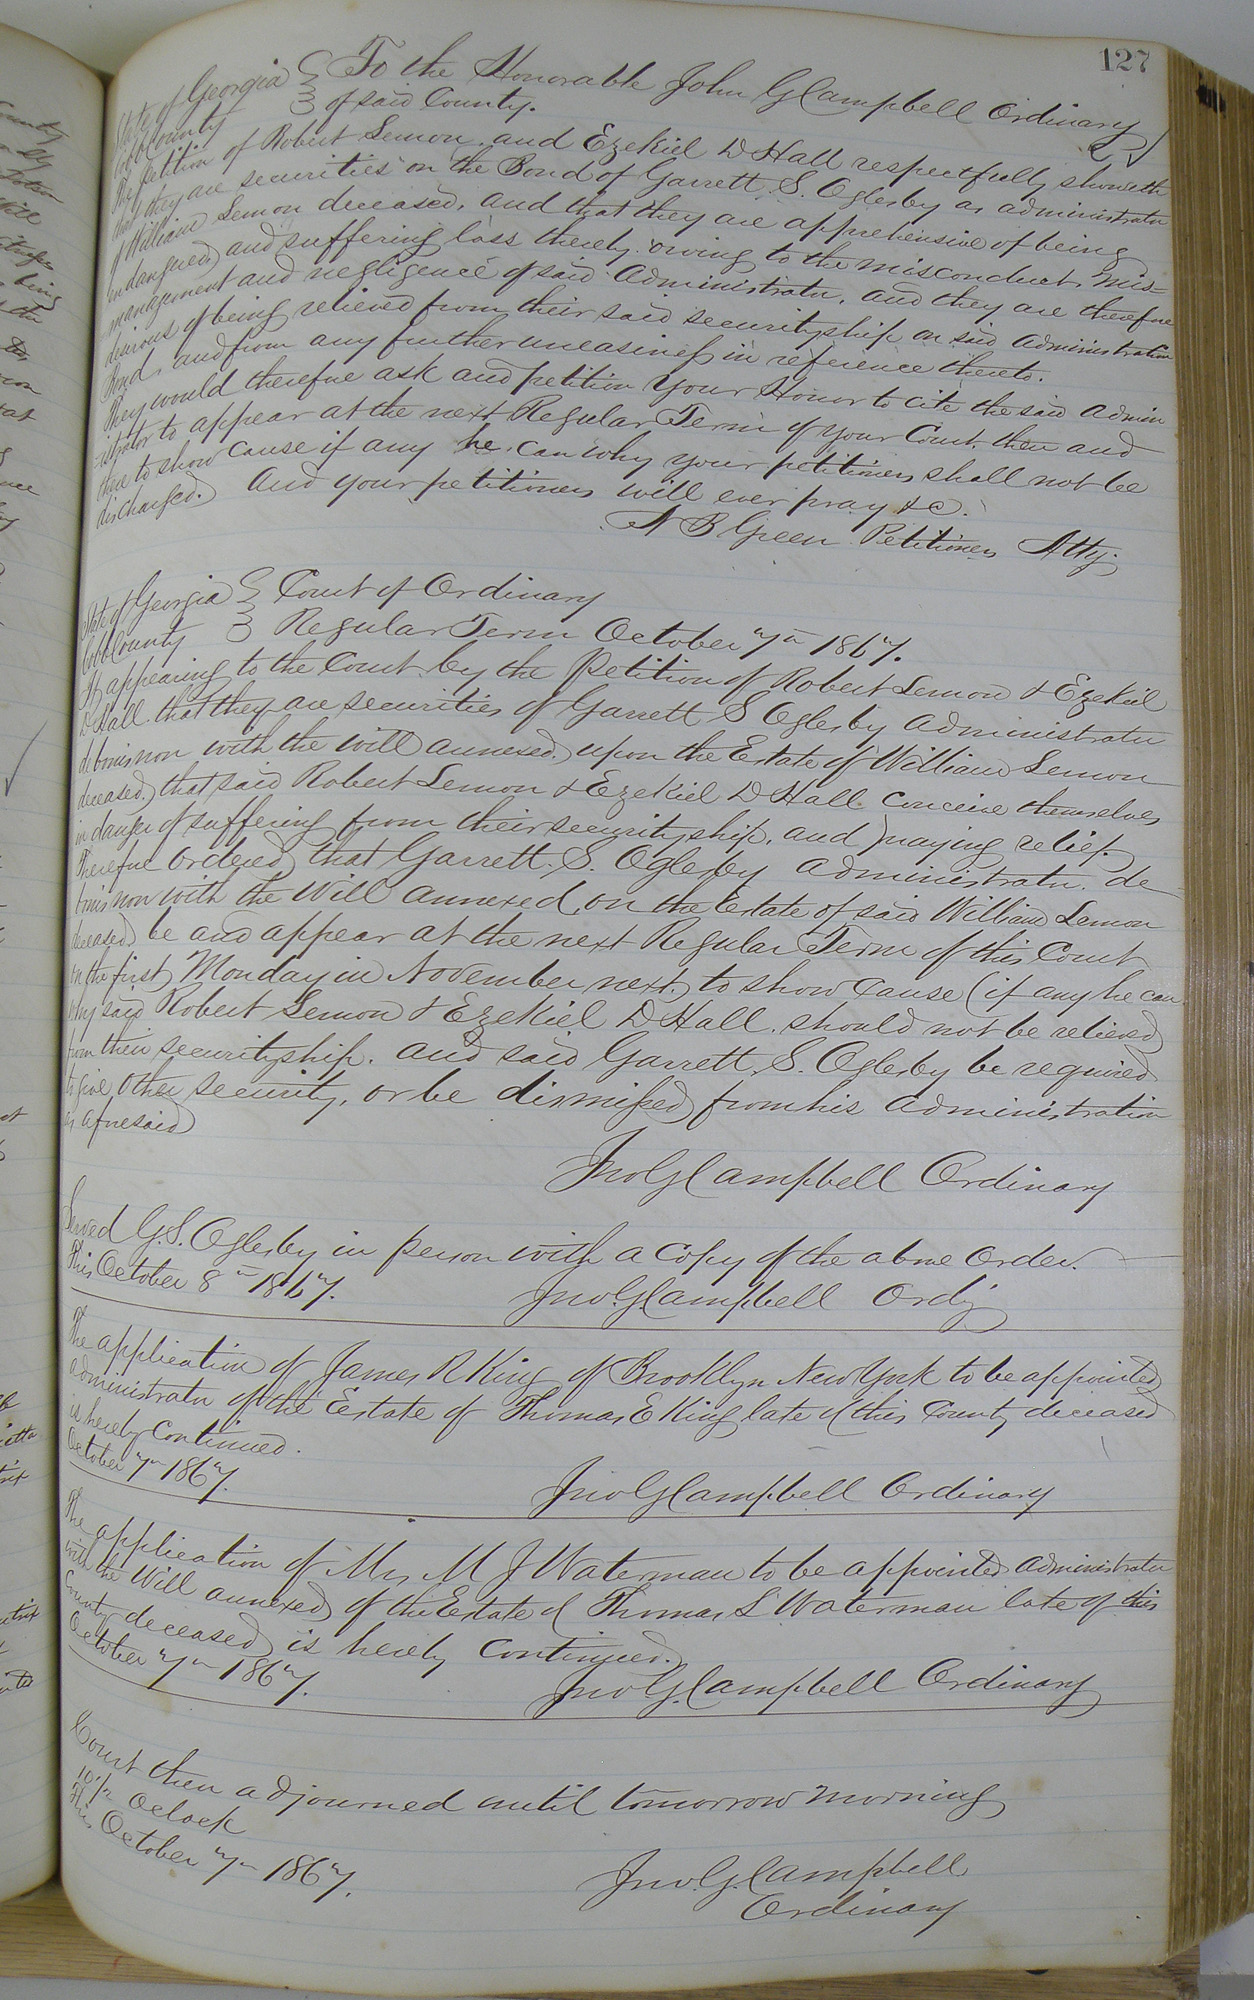 127
State of Georgia } To the Honorable John G Campbell Ordinary
Cobb County } of said County.
The petition of Robert Lemon and Ezekiel D Hall respectfully showeth
that they are securities on the Bond of Garrett S. Oglesby as administrator
of William Lemon deceased, and that they are apprehensive of being
endangered and suffering loss thereby owing to the misconduct, mis=
management and negligence of said Administrator, and they are therefore
desirous of being relieved from their said securityship on said administration
Bond, and from any further uneasiness in reference thereto.
They would therefore ask and petition your Honor to cite the said admin
istrator to appear at the next Regular Term of your Court then and
there to show cause if any he can why your petitioners shall not be
discharged. And your petitioners will ever pray &c.
A B Green Petitioners Atty.
State of Georgia } Court of Ordinary
Cobb County } Regular Term October 7th 1867.
It appearing to the Court by the Petition of Robert Lemon & Ezekiel
D Hall that they are securities of Garrett S Oglesby administrator
debonis non with the will annexed upon the Estate of William Lemon
deceased, that said Robert Lemon & Ezekiel D Hall conceive themselves
in danger of suffering from their securityship, and praying relief.
Therefore ordered that Garrett S. Oglesby administrator de
bonis non with the Will annexed on the Estate of said William Lemon
deceased be and appear at the next Regular Term of this Court
on the first Monday in November next to show cause (if any he can
why said Robert Lemon & Ezekiel D Hall should not be relieved
from their securityship. and said Garrett S. Oglesby be required
to give other security, or be dismissed from his administration
as aforesaid
Jno G Campbell Ordinary
Served G. S. Oglesby in person with a copy of the above order.
This October 8th 1867. Jno. G. Campbell Ordy
The application of James R King of Brooklyn New York to be appointed
administrator of the Estate of Thomas E King late of this County deceased
is hereby continued.
October 7th 1867. Jno G Campbell Ordinary
The application of Mrs M J Waterman to be appointed administrator
with the Will annexed of the Estate of Thomas S Waterman late of this
County deceased is hereby continued.
October 7th 1867. Jno G. Campbell Ordinary
Court then adjourned until tomorrow morning
10 Oclock
This October 7th 1867.
Jno. G. Campbell
Ordinary